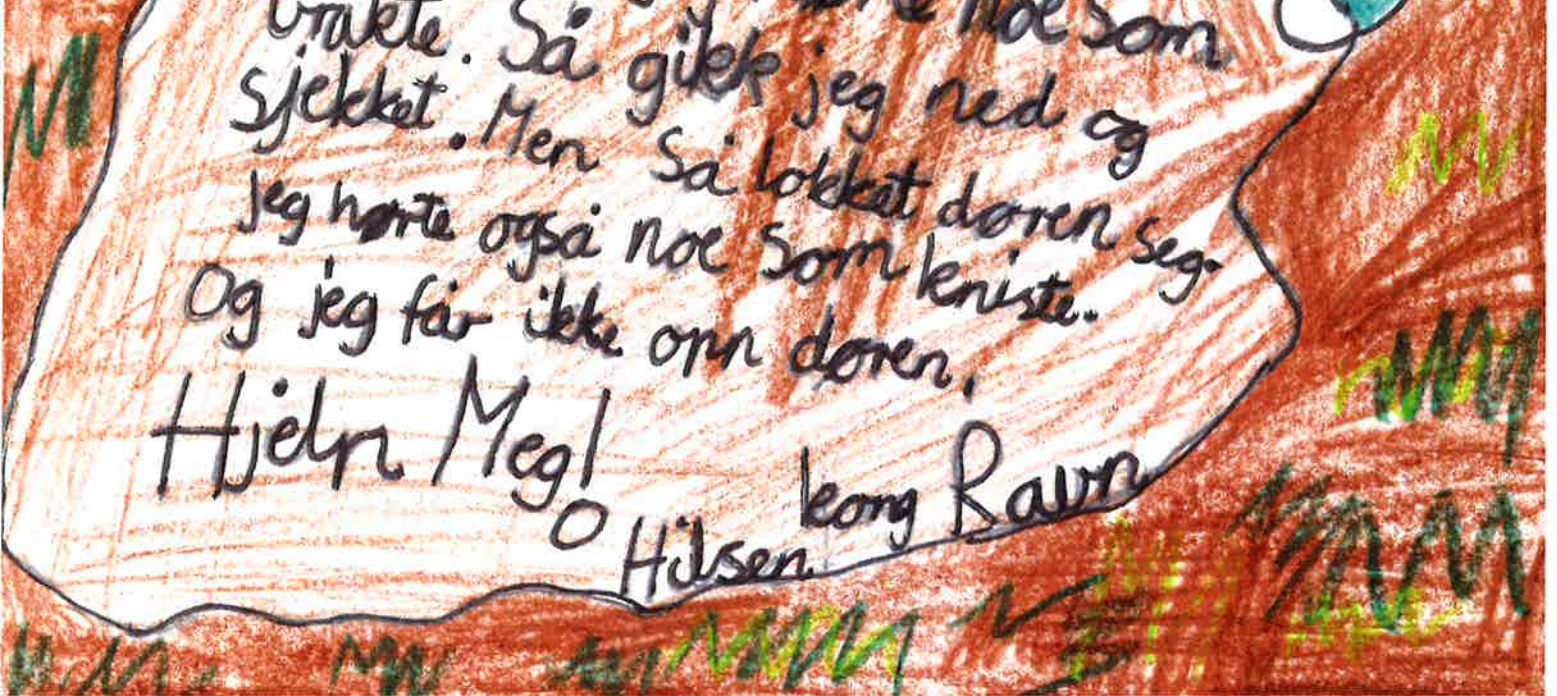 noe som
brakte. Så gikk jeg ned og
sjekket. Men så lokket døren seg.
jeg hørte også noe som kniste.
Og jeg får ikke opp døren.
Hjelp Meg!
Hilsen kong Ravn